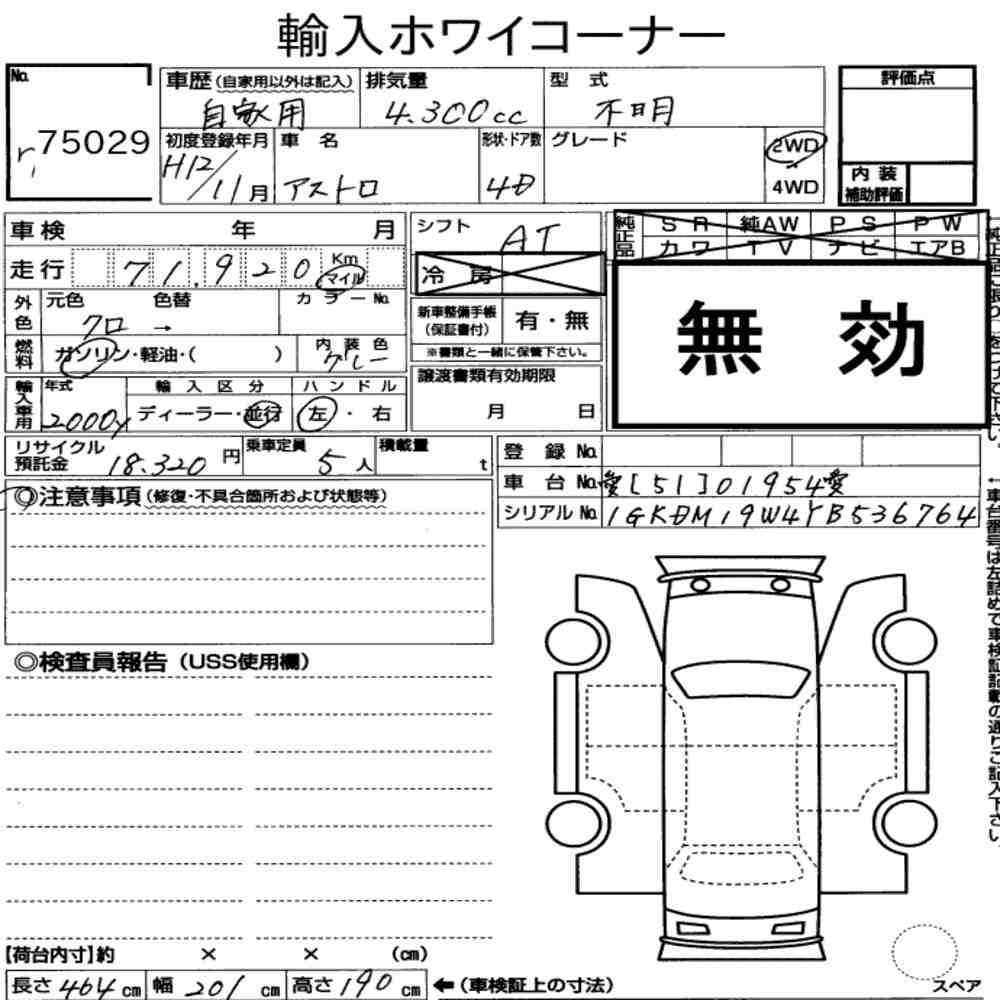 輸入ホワイコーナー
No.
75029
車歴(自家用以外は記入) 排気量 型式
自家用 4.300cc 不明
評価点
初度登録年月 車名 形状・ドア数 グレード
H12/11月 アストロ 4D
2WD
4WD
内装
補助評価
車検 年 月
走行 71.920 Km
マイル
外色 元色 色替 カラーNo.
クロ →
燃料 ガソリン・軽油・( ) 内装色
グレー
輸入車用 年式 輸入区分 ハンドル
2000y ディーラー・並行 左・右
シフト AT
冷房
新車整備手帳
(保証書付) 有・無
※書類と一緒に保管下さい。
譲渡書類有効期限
月 日
純正品 SR 純AW PS PW
カワ TV ナビ エアB
無効
リサイクル
預託金 18.320円 乗車定員 5人 積載量 t
登録No.
車台No. 愛[51]01954愛
シリアルNo. 1GKDM19W4YB536764
◎注意事項(修復・不具合箇所および状態等)
◎検査員報告(USS使用欄)
←車台番号は左詰めで車検証記載の通りご記入下さい。
【荷台内寸】約 × × (cm)
長さ464cm 幅201cm 高さ190cm ←(車検証上の寸法)
スペア